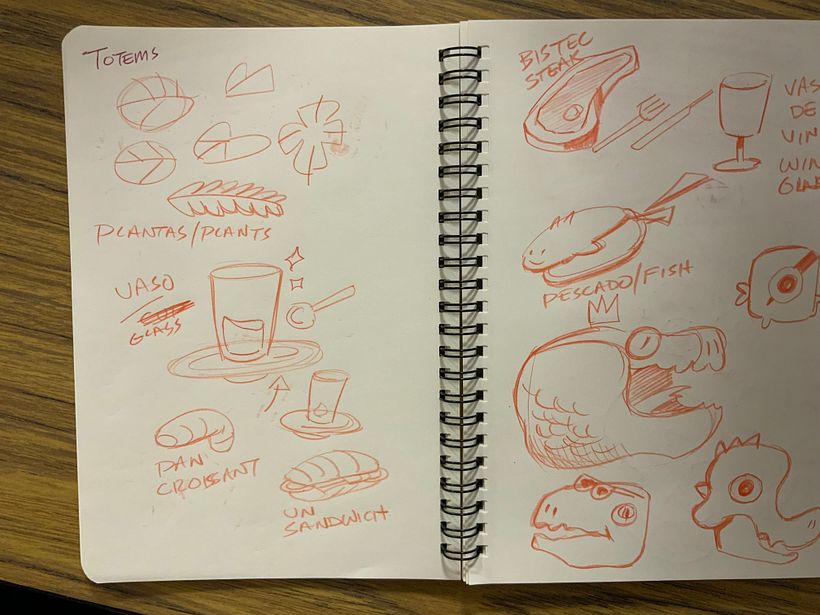 TOTEMS
PLANTAS/PLANTS
VASO
GLASS
PAN
CROISSANT
UN
SANDWICH
BISTEC
STEAK
VAS
DE
VIN
WIN
GLA
PESCADO/FISH